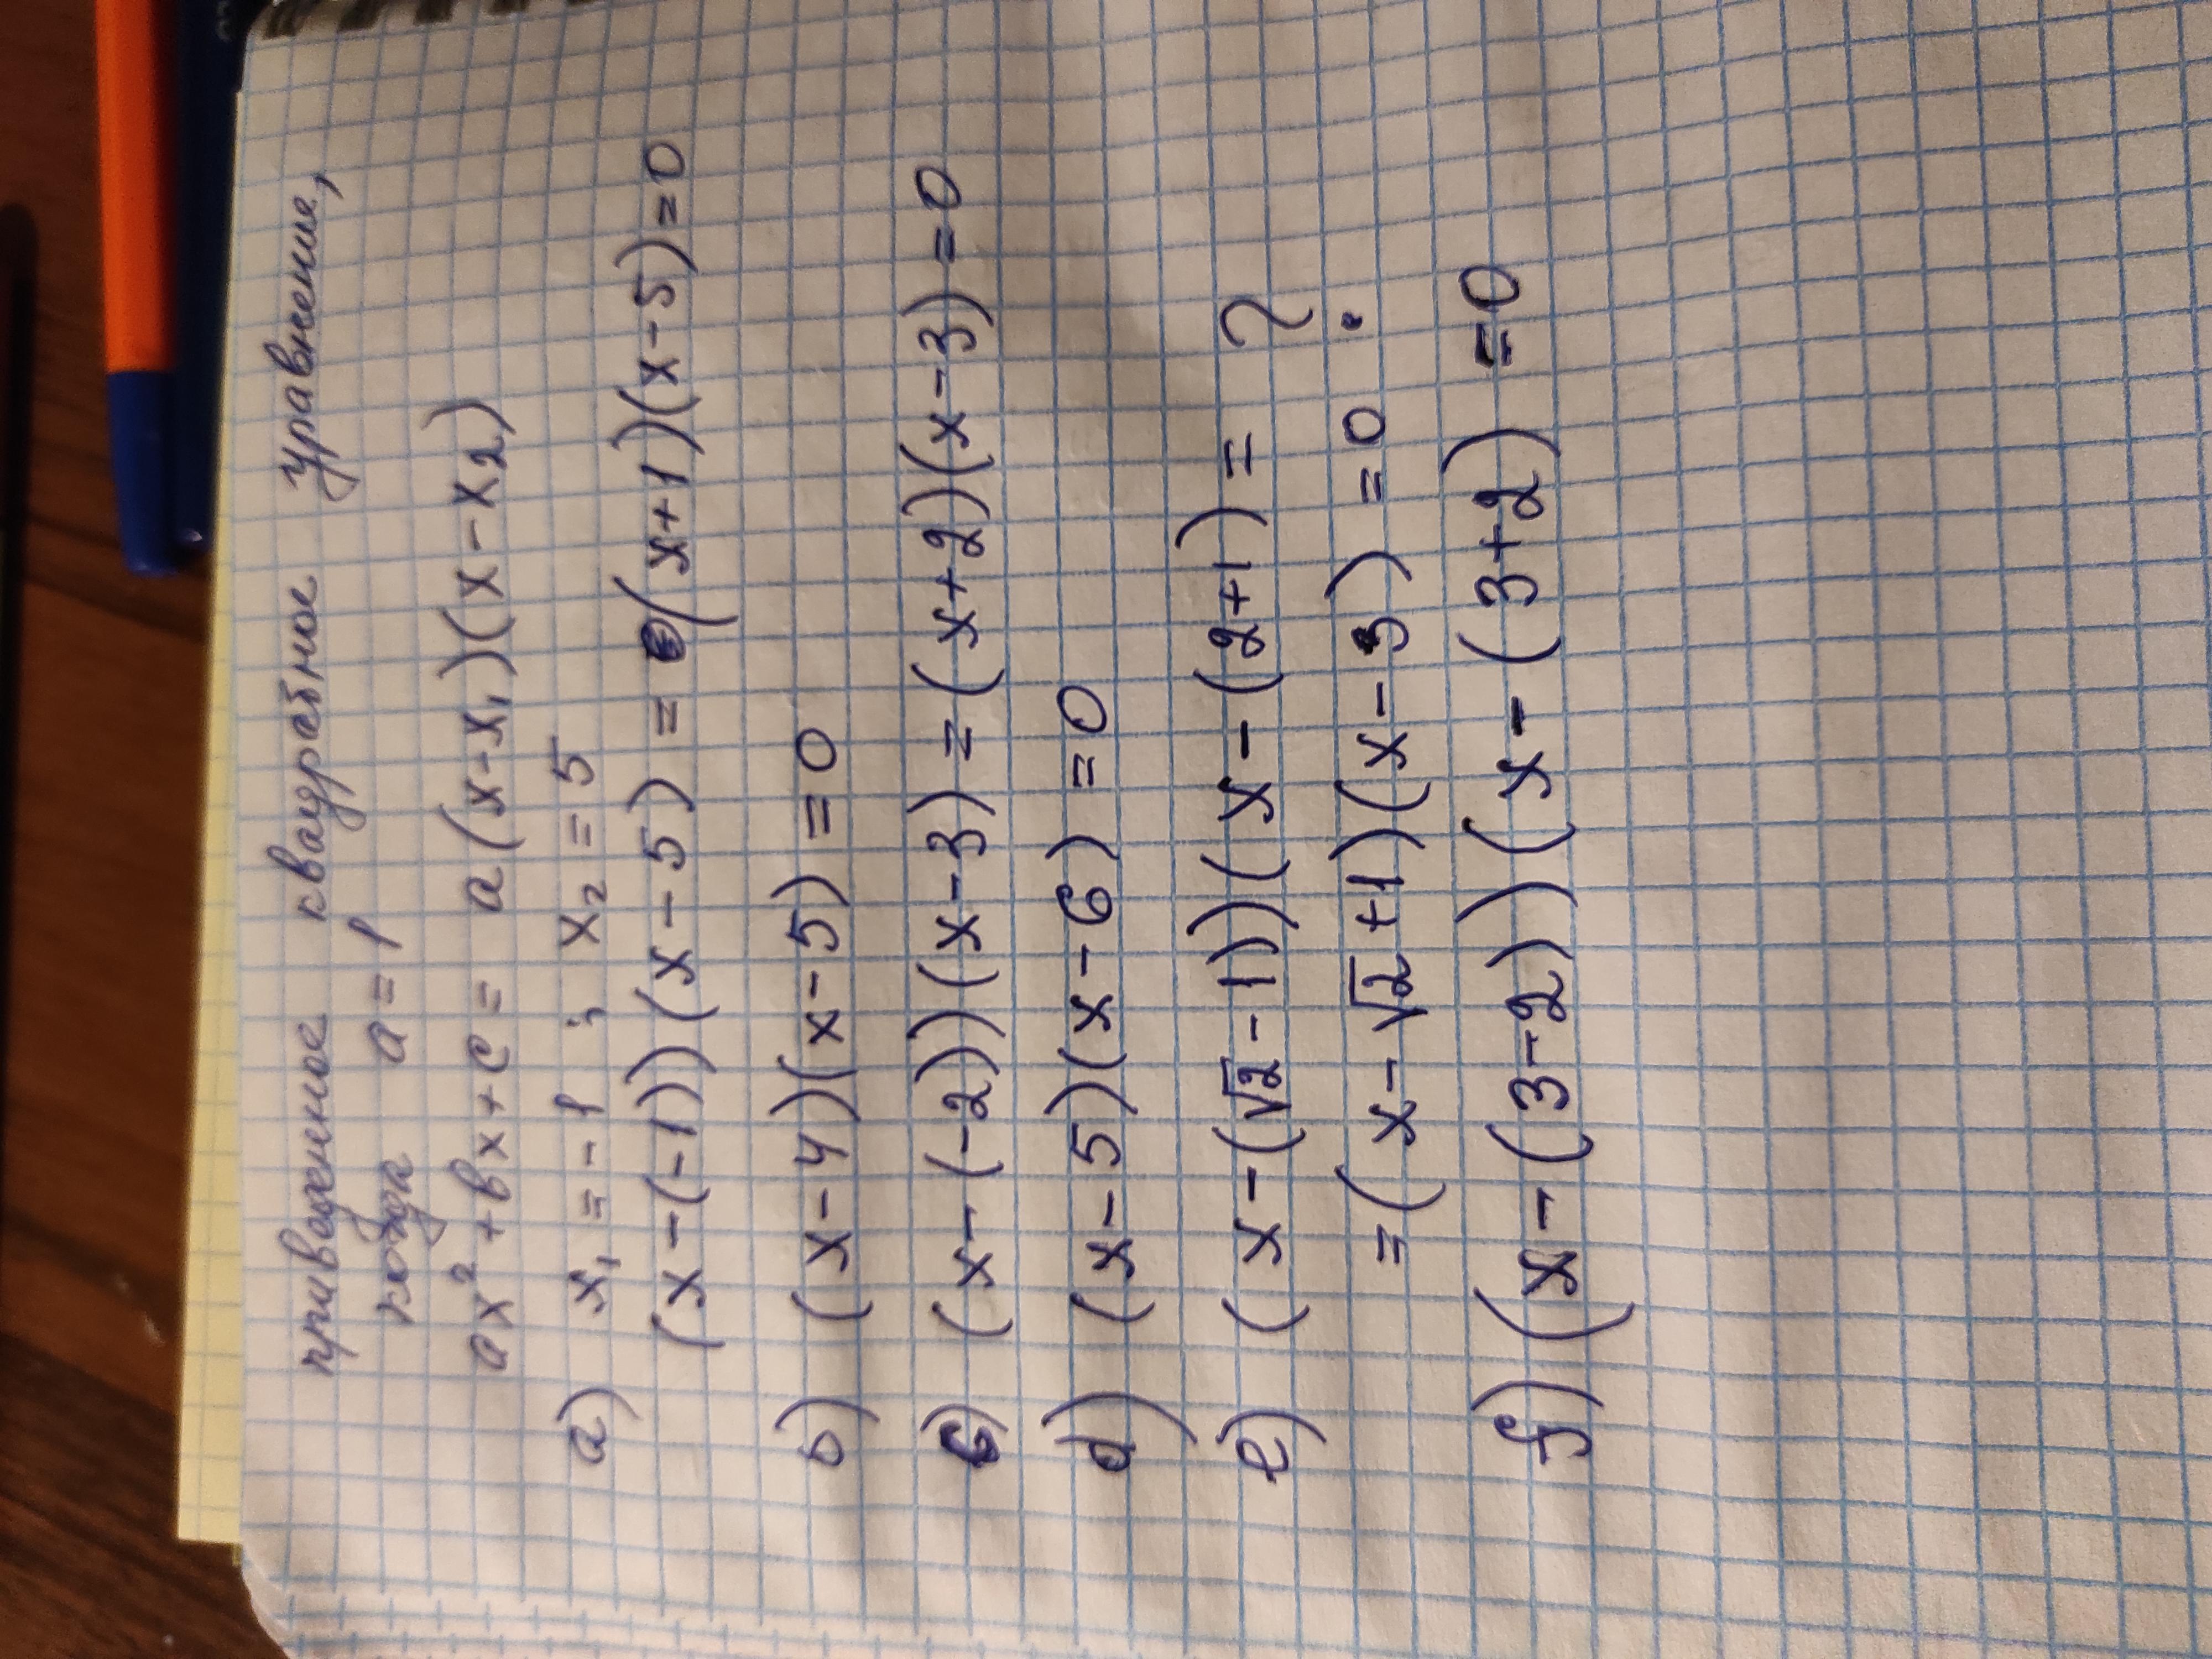 приведенное квадратное уравнение,
когда a = 1
ax² + bx + c = a(x-x₁)(x-x₂)
a) x₁ = -1 ; x₂ = 5
(x-(-1))(x-5) = (x+1)(x-5)=0
b) (x-4)(x-5)=0
c) (x-(-2))(x-3)=(x+2)(x-3)=0
d) (x-5)(x-6)=0
e) (x-(√2-1))(x-(2+1)= ?
=(x-√2+1)(x-3)=0
f) (x-(3-2))(x-(3+2)=0